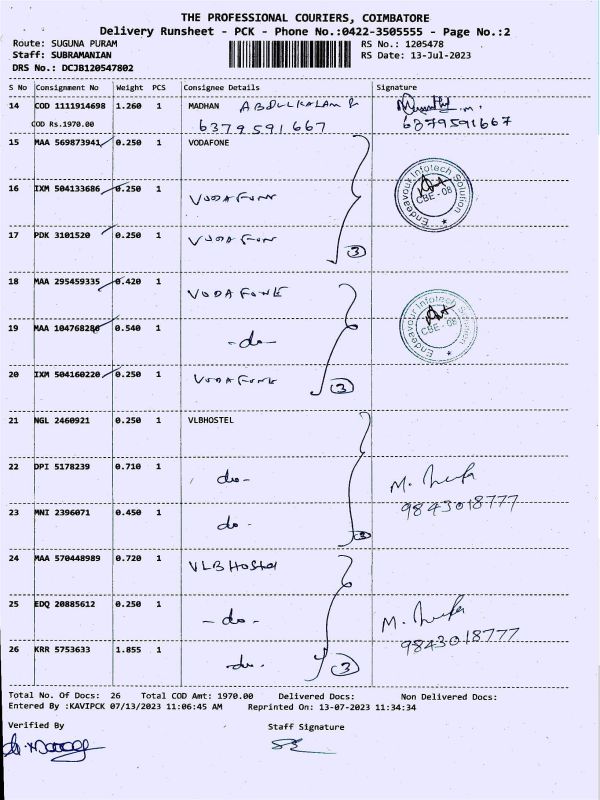 THE PROFESSIONAL COURIERS, COIMBATORE
Delivery Runsheet - PCK - Phone No.:0422-3505555 - Page No.:2
Route: SUGUNA PURAM RS No.: 1205478
Staff: SUBRAMANIAN RS Date: 13-Jul-2023
DRS No.: DCJB120547802
S No Consignment No Weight PCS Consignee Details Signature
14 COD 1111914698 1.260 1 MADHAN ABDULKALAM
COD Rs.1970.00 6379591667 6379591667
15 MAA 569873941 0.250 1 VODAFONE
Endeavour Infotech Solution CBE - 08
16 IXM 504133686 0.250 1 VODAFONE
17 PDK 3101520 0.250 1 VODAFONE
3
18 MAA 295459335 0.420 1 VODAFONE
Endeavour Infotech Solution CBE - 08
19 MAA 104768286 0.540 1 -do-
20 IXM 504160220 0.250 1 VODAFONE 3
21 NGL 2460921 0.250 1 VLBHOSTEL
22 DPI 5178239 0.710 1 do-
9843018777
23 MNI 2396071 0.450 1 do-
3
24 MAA 570448989 0.720 1 VLB Hostel
25 EDQ 20885612 0.250 1 -do-
9843018777
26 KRR 5753633 1.855 1 -do. 3
Total No. Of Docs: 26 Total COD Amt: 1970.00 Delivered Docs: Non Delivered Docs:
Entered By :KAVIPCK 07/13/2023 11:06:45 AM Reprinted On: 13-07-2023 11:34:34
Verified By Staff Signature